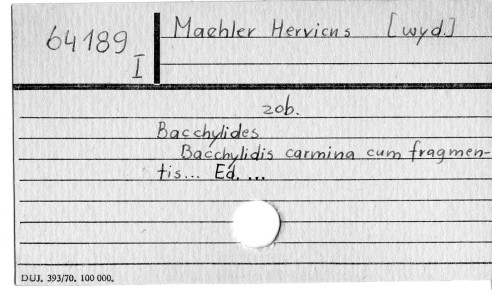 64189 Maehler Hervicus [wyd.]
I
zob.
Bacchylides
Bacchylidis carmina cum fragmen-
tis... Ed. ...
DUJ. 393/70. 100 000.